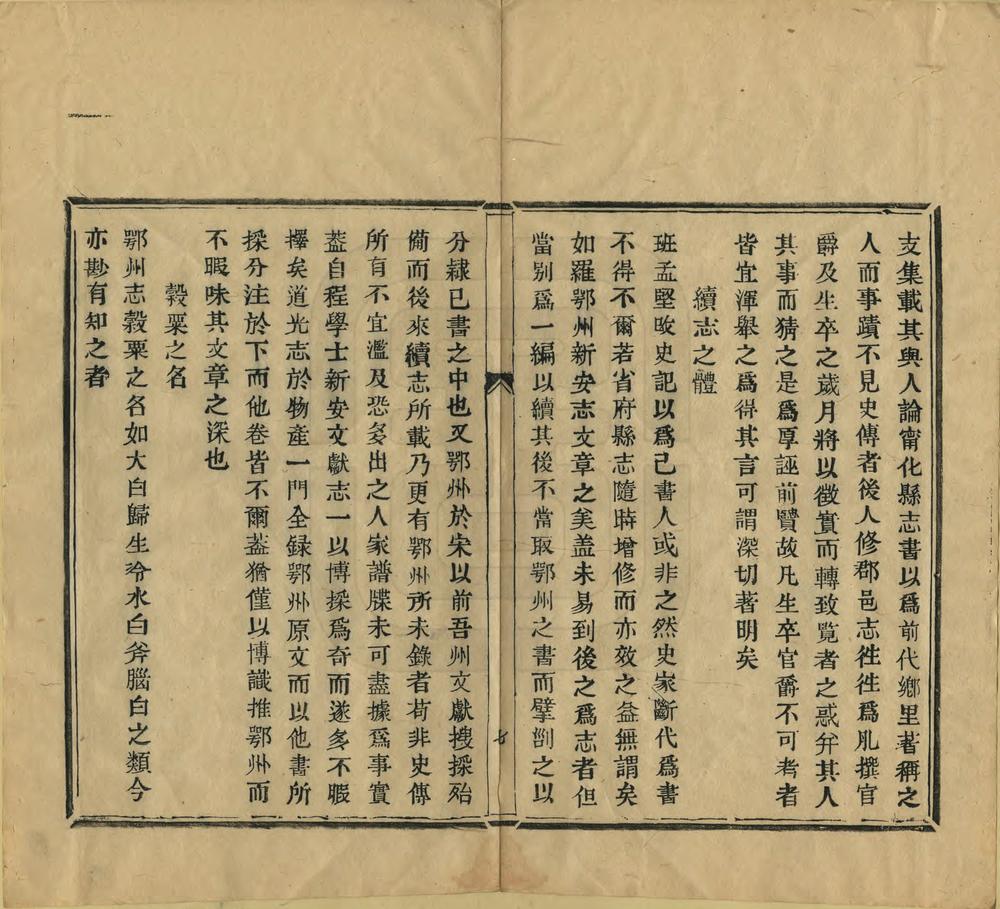 支集載其與人論甯化縣志書以爲前代鄉里著稱之
人而事蹟不見史傳者後人修郡邑志徃徃爲肊撰官
爵及生卒之歲月將以徵實而轉致覽者之惑弁其人
其事而猜之是爲厚誣前賢故凡生卒官爵不可考者
皆宜渾舉之爲得其言可謂深切著明矣
續志之體
班孟堅晙史記以爲己書人或非之然史家斷代爲書
不得不爾若省府縣志隨時增修而亦效之益無謂矣
如羅鄂州新安志文章之美盖未易到後之爲志者但
當别爲一編以續其後不當取鄂州之書而擘劃之以
七
分隸已書之中也又鄂州於宋以前吾州文獻搜採殆
僃而後來續志所載乃更有鄂州所未錄者苟非史傳
所有不宜濫及恐多出之人家譜牒未可盡據爲事實
葢自程學士新安文獻志一以博採爲奇而遂多不暇
擇矣道光志於物產一門全録鄂州原文而以他書所
採分注於下而他卷皆不爾葢猶僅以博識推鄂州而
不暇味其文章之深也
穀粟之名
鄂州志穀粟之各如大白歸生泠水白斧腦白之類今
亦尠有知之者